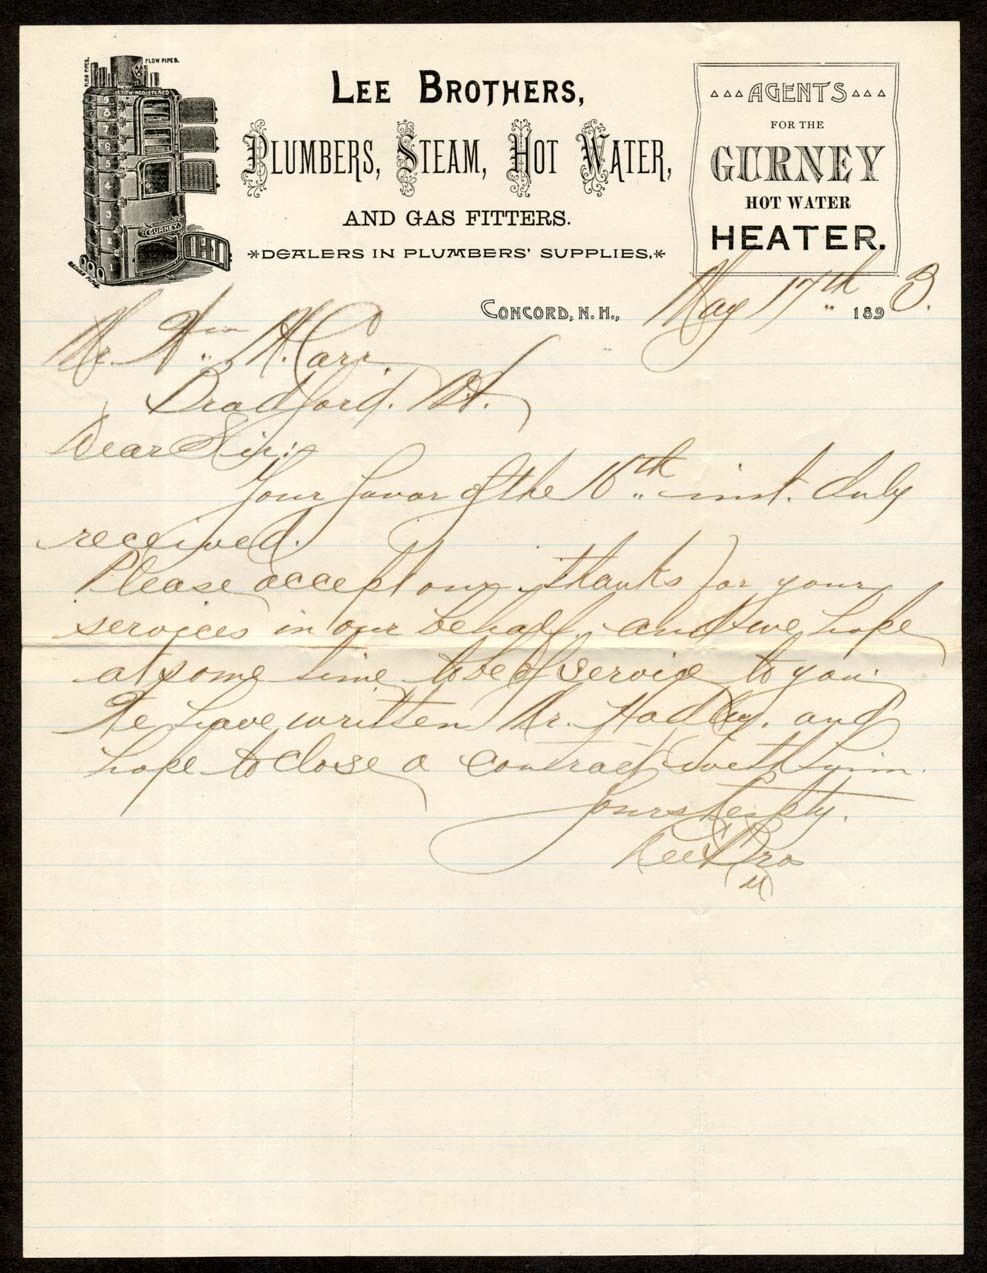 FLOW PIPES.
FLOW PIPES.
DESIGN REGISTERED
8
7
6
5
4
3
2
GURNEY
LEE BROTHERS,
PLUMBERS, STEAM, HOT WATER,
AND GAS FITTERS.
*DEALERS IN PLUMBERS' SUPPLIES.*
AGENTS
FOR THE
GURNEY
HOT WATER
HEATER.
CONCORD, N. H., May 17th 1893.
Mr. Wm H. Carr
Bradford.
Dear Sir;
Your favor of the 16th inst. duly
received.
Please accept our thanks for your
services in our behalf, and we hope
at some time to be of service to you.
We have written Mr. Hadley. and
hope to close a contract with him.
Yours
Lee Bros